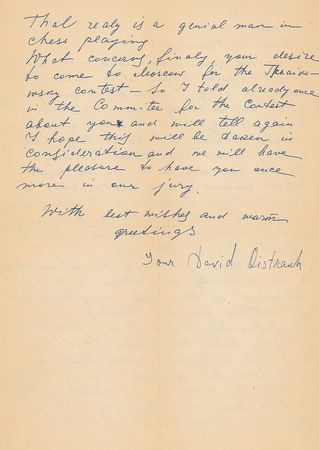 Thal realy is a genial man in
chess playing
What concerns, finaly, your desire
to come to Moscow for the Tchaikow-
msky contest – So I told already once
in the Committee for the Contest
about you and will tell again
I hope this will be taken in
consideration and we will have
the pleasure to have you once
more in our jury.
With best wishes and warm
greetings
Your David Oistrakh